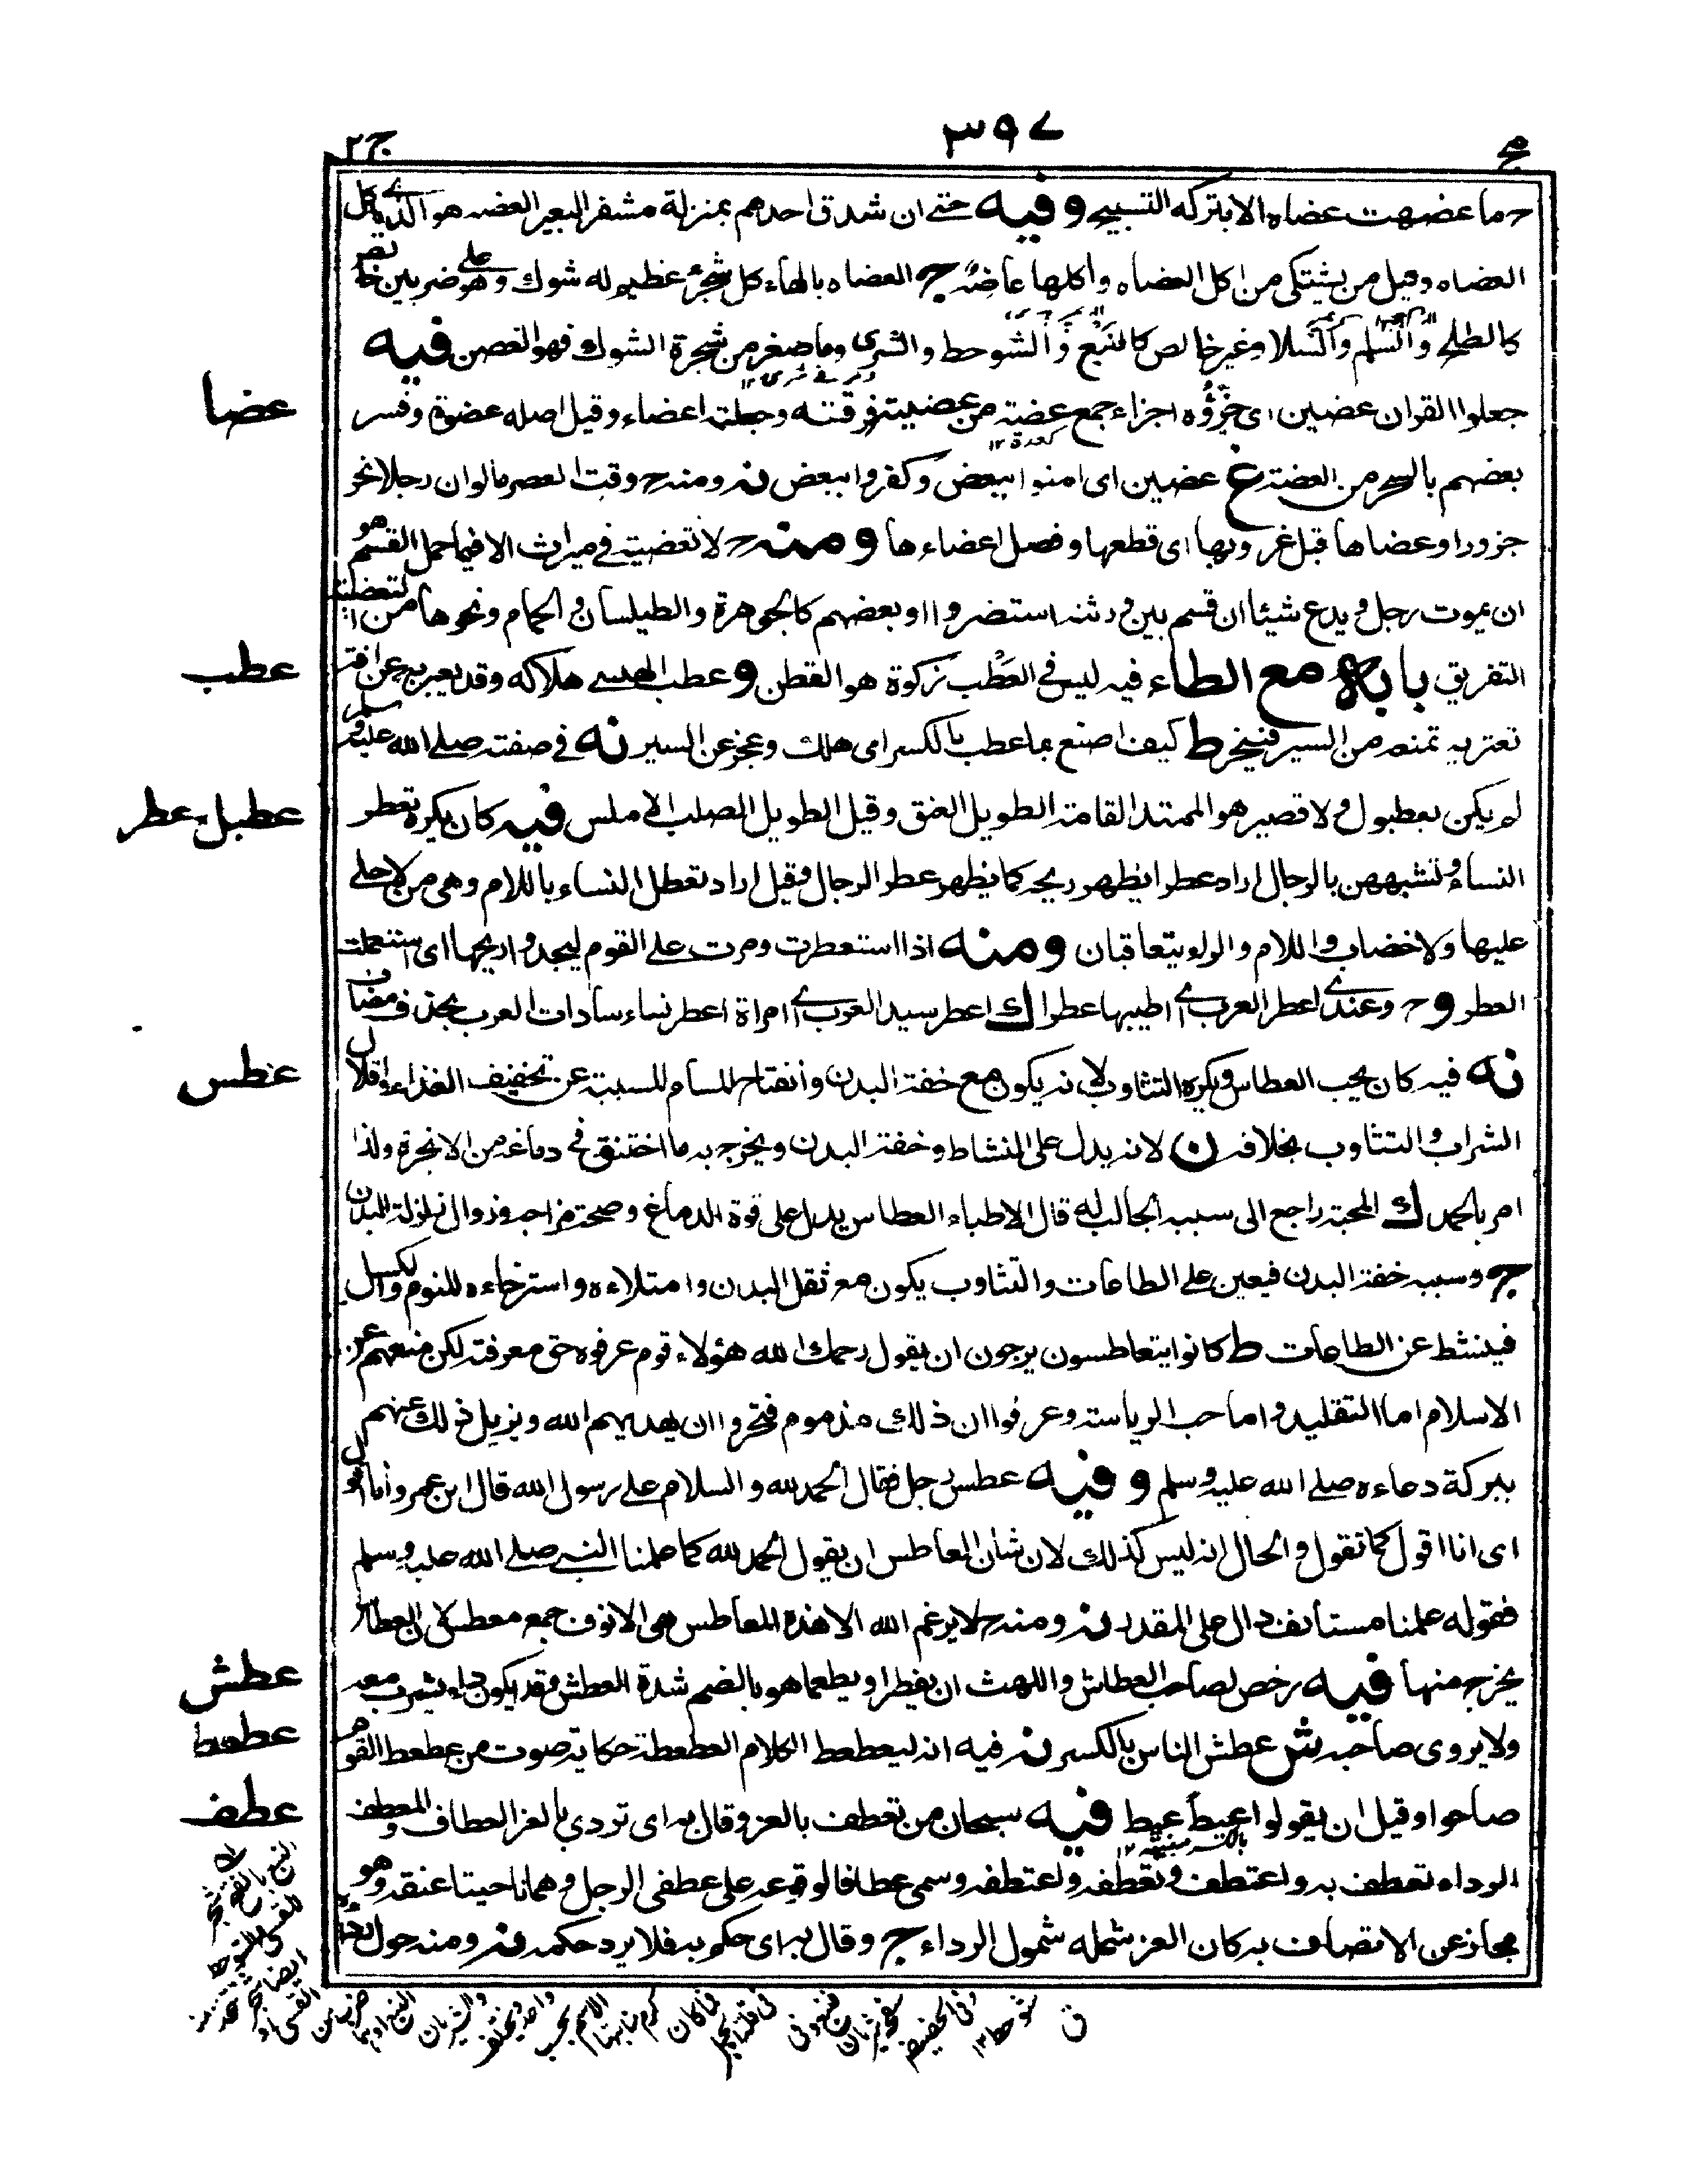 مج ٣٩٧ ج٢
ح ما عضهت عضاه الا بتركه التسبيح وفيه حتى ان شدق احدهم بمنزلة مشفر البعير العضه هو الذى ياكل
العضاه وقيل من يشتكى من اكل العضاه واكلها عاضه ج العضاه بالهاء كل شجر عظيم له شوك وهو على ضربين خالص
كالطلح والسلم والسلام وغير خالص كالنبع والشوحط والشرى وما صغر من شجرة الشوك فهو العض فيه
عضا
جعلوا القران عضين اى جزؤه اجزاء جمع عضة من عضيته فرقته وجعلته اعضاء وقيل اصله عضوة وفسر
بعضهم بالسحر من العضه غ عضين اى امنوا ببعض وكفروا ببعض نه ومنه ح وقت العصر مالو ان رجلا نحر
جزورا وعضاها قبل غروبها اى قطعها وفصل اعضاءها ومنه ح لا تعضية فى ميراث الا فيما حمل القسم هو
ان يموت رجل ويدع شيئا ان قسم بين ورثته استضروا او بعضهم كالجوهرة والطيلسان والحمام ونحوها من التعضية
التفريق بابه مع الطاء فيه ليس فى العطب زكوة هو القطن وعطب الهدى هلاكه وقد يعبر به عن افة
عطب
تعتريه تمنعه من السير فينحر ط كيف اصنع بما عطب بالكسر اى هلك وعجز عن السير نه فى صفته صلى الله عليه وسلم
لم يكن بعطبول ولا قصير هو الممتد القامة الطويل العنق وقيل الطويل الصلب الاملس فيه كان يكره تعطر
عطبل - عطر
النساء وتشبههن بالرجال اراد عطرا يظهر ريحه كما يظهر عطر الرجال وقيل اراد تعطل النساء باللام وهى من لا حلى
عليها ولا خضاب واللام والراء يتعاقبان ومنه اذا استعطرت ومرت على القوم ليجدوا ريحها اى استعملت
العطر و ح وعندى اعطر العرب اى اطيبها عطرا ك اعطر سيد العرب اى امراة اعطر نساء سادات العرب بحذف مضاف
نه فيه كان يحب العطاس ويكره التثاوب لانه يكون مع خفة البدن وانفتاح المسام المسببة عن تخفيف الغذاء واقلال
عطس
الشراب والتثاوب بخلافه ن لانه يدل على النشاط وخفة البدن ويخرج به ما اختنق فى دماغه من الابخرة ولذا
امر بالحمد ك المحبة راجع الى سببه الجالب له قال الاطباء العطاس يدل على قوة الدماغ وصحة مزاجه وزوال نزلة البدن
ج وسببه خفة البدن فيعين على الطاعات والتثاوب يكون مع ثقل البدن وامتلاءه واسترخاءه للنوم والكسل
فينشط عن الطاعات ط كانوا يتعاطسون يرجون ان يقول رحمك الله هؤلاء قوم عرفوه حق معرفته لكن منعهم عن
الاسلام اما التقليد واما حب الرياسة وعرفوا ان ذلك مذموم فتحروا ان يهديهم الله ويزيل ذلك عنهم
ببركة دعاءه صلى الله عليه وسلم وفيه عطس رجل فقال الحمد لله والسلام على رسول الله قال ابن عمر وانا اقول
اى انا اقول كما تقول والحال انه ليس كذلك لان شان العاطس ان يقول الحمد لله كما علمنا النبى صلى الله عليه وسلم
فقوله علمنا مستانف دال على المقدر نه ومنه ح لا يرغم الله الا هذه المعاطس هى الانوف جمع معطس لان العطاس
يخرج منها فيه رخص لصاحب العطاش واللهث ان يفطرا ويطعما هو بالضم شدة العطش وقد يكون داء يشرب معه
عطش
ولا يروى صاحبه ش عطش الناس بالكسر نه فيه انه ليعطعط الكلام العطعطة حكاية صوت من عطعط القوم
عطعط
صاحوا وقيل ان يقولوا عيط عيط فيه سبحان من تعطف بالعز وقال به اى تردى بالعز العطاف والمعطف
عطف
الرداء تعطف به واعتطف وتعطفه واعتطفه وسمى عطافا لوقوعه على عطفى الرجل وهما ناحيتا عنقه وهو
مجاز عن الاتصاف به كان العز شمله شمول الرداء ج وقال به اى حكم به فلا يرد حكمه نه ومنه حول